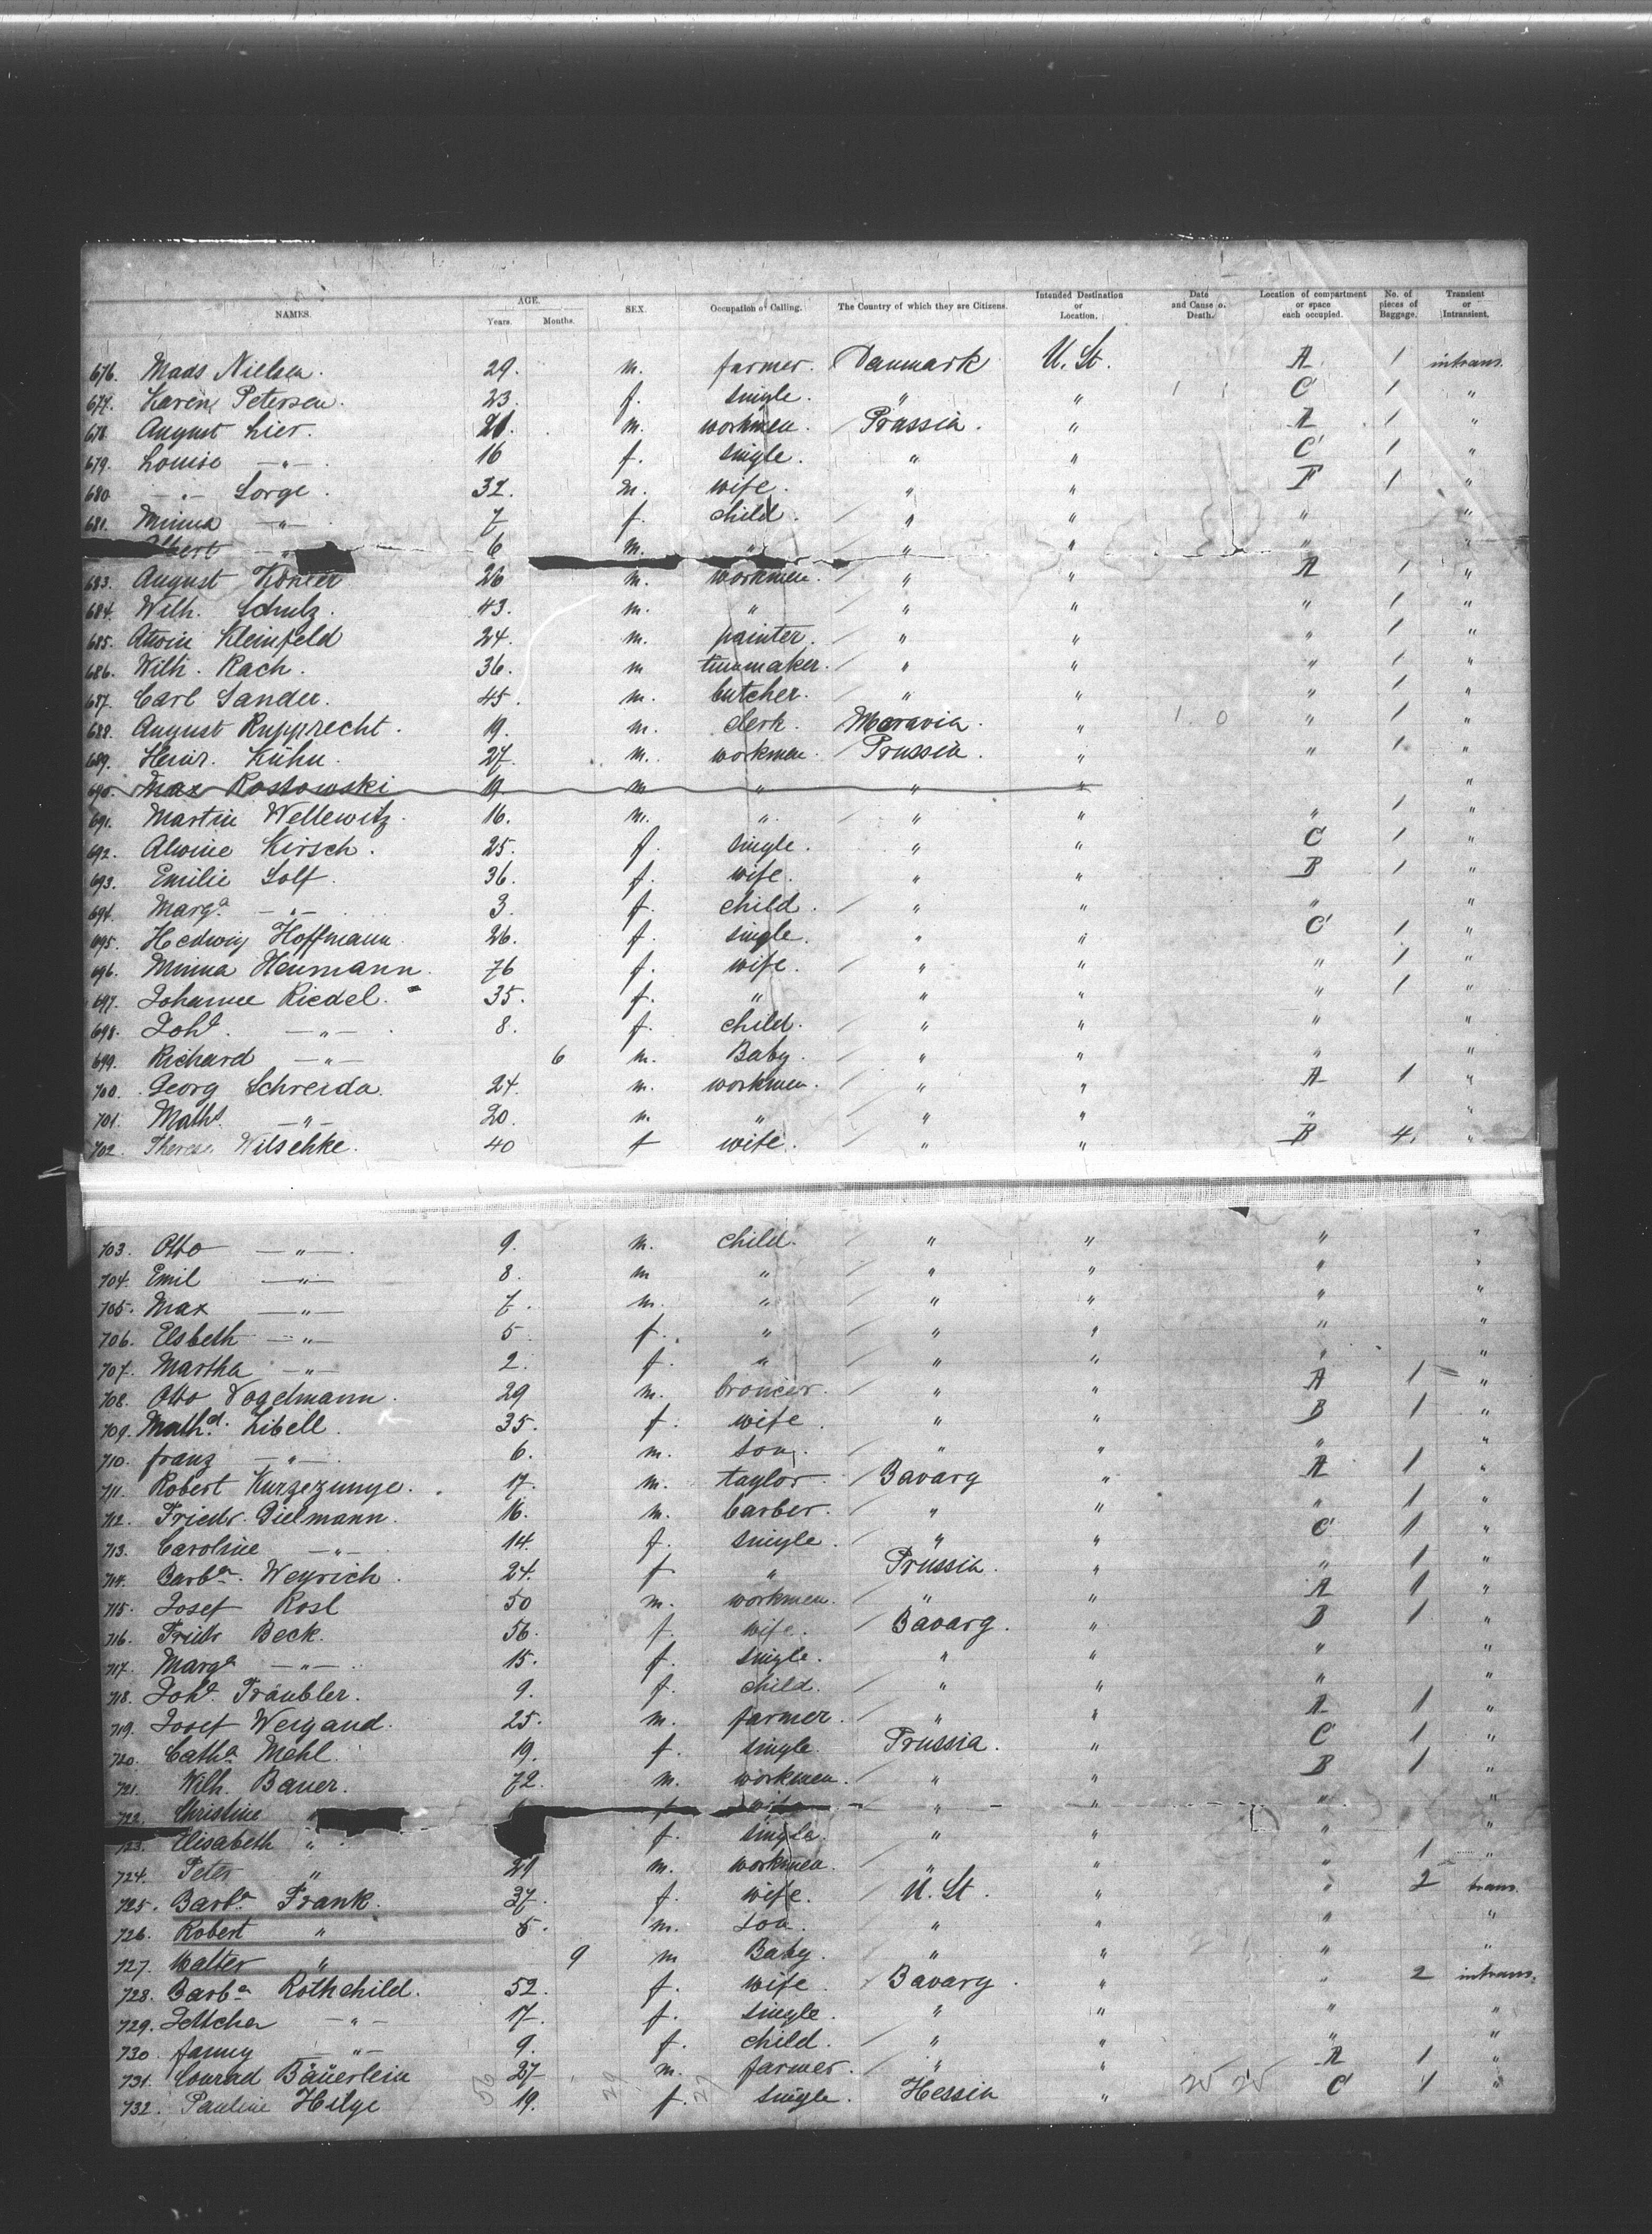 NAMES. AGE. Years. Months. SEX. Occupation or Calling. The Country of which they are Citizens. Intended Destination or Location. Date and Cause of Death. Location of compartment or space each occupied. No. of pieces of Baggage. Transient or Intransient.
676. Mads Nielsen. 29. m. farmer. Danmark U. St. A 1 intrans.
677. Karen Petersen. 23. f. single. " " C 1 "
678. August Lier. m. workmen. Prussia. " A 1 "
679. Louise —"— 16 f. single. " " C 1 "
680 —"— Sorge. 32. m. wife. " " F 1 "
681. Minna —"— 7 f. child. " " " "
6 m. " " " " "
683. August 26 m. workmen. " " A 1 "
684. Wilh. Schulz. 43. m. " " " " 1 "
685. Kleinfeld 24. m. painter. " " " 1 "
686. Wilh. Rach. 36. m " " " 1 "
687. Carl Sander. 45. m. butcher. " " " 1 "
688. August Rupprecht. 19. m. clerk. Moravia. " " 1 "
689. Heinr. Kühn. 27. m. workmen. Prussia. " " 1 "
690. Max Rostowski 19 m " " " "
691. Martin Wellewitz. 16. m. " " " " 1 "
692. Alwine Kirsch. 25. f. single. " " C 1 "
693. Emilie Solf. 36. f. wife. " " B 1 "
694. Marg.a —"— 3. f. child. " " " "
695. Hedwig Hoffmann 26. f. single. " " C 1 "
696. Minna Heumann. 76 f. wife. " " " 1 "
697. Johanne Riedel. 35. f. " " " " 1 "
698. Joh.a —"— 8. f. child. " " " "
699. Richard —"— 6 m. Baby. " " " "
700. Georg Schreida. 24. m. workmen. " " A 1 "
701. —"— 20. m. " " " " "
702. Therese Witschke. 40 f wife. " " B 4. "
703. Otto —"— 9. m. child. " " " "
704. Emil —"— 8. m " " " " "
705. Max —"— 7. m. " " " " "
706. Elsbeth —"— 5 f. " " " " "
707. Martha —"— 2. f. " " " " "
708. Otto Vogelmann. 29 m. broncier. " " A 1 "
709. Math.d Libell. 35. f. wife. " " B 1 "
710. franz —"— 6. m. son. " " " "
711. Robert Kurzezunge. 17. m. taylor Bavarg " A 1 "
712. Friedr. Dielmann. 16. m. barber. " " " 1 "
713. Caroline —"— 14. f. single. " " C 1 "
714. Barb.a Weyrich. 24. f " Prussia. " " 1 "
715. Josef Rosl 50 m. workmen. " " A 1 "
716. Beck. 56. f. wife. Bavarg. " B 1 "
717. Marg.a —"— 15. f. single. " " " "
718. Joh.a Träubler. 9. f. child. " " " "
719. Josef Weigand. 25. m. farmer. " " A 1 "
720. Cath.a Mehl. 19. f. single. Prussia. " C 1 "
721. Wilh. Bauer. 72. m. workmen. " " B 1 "
722. Christine " f wife " " " "
723. Elisabeth " f. single. " " " "
724. Peter " 21 m. workmen. " " " 1 "
725. Barb.a Frank. 27. f. wife. U. St. " " 2 trans.
726. Robert " 5. m. son. " " " "
727. Walter " 9 m Baby. " " " "
728. Barb.a Rothchild. 52. f. wife Bavarg. " " 2 intrans.
729. Jettchen —"— 17. f. single. " " " "
730. fanny —"— 9. f. child. " " " "
731. Conrad Bäuerlein 27 m. farmer. " " A 1 "
732. Pauline Hilge 19. f. single. Hessia " C 1 "